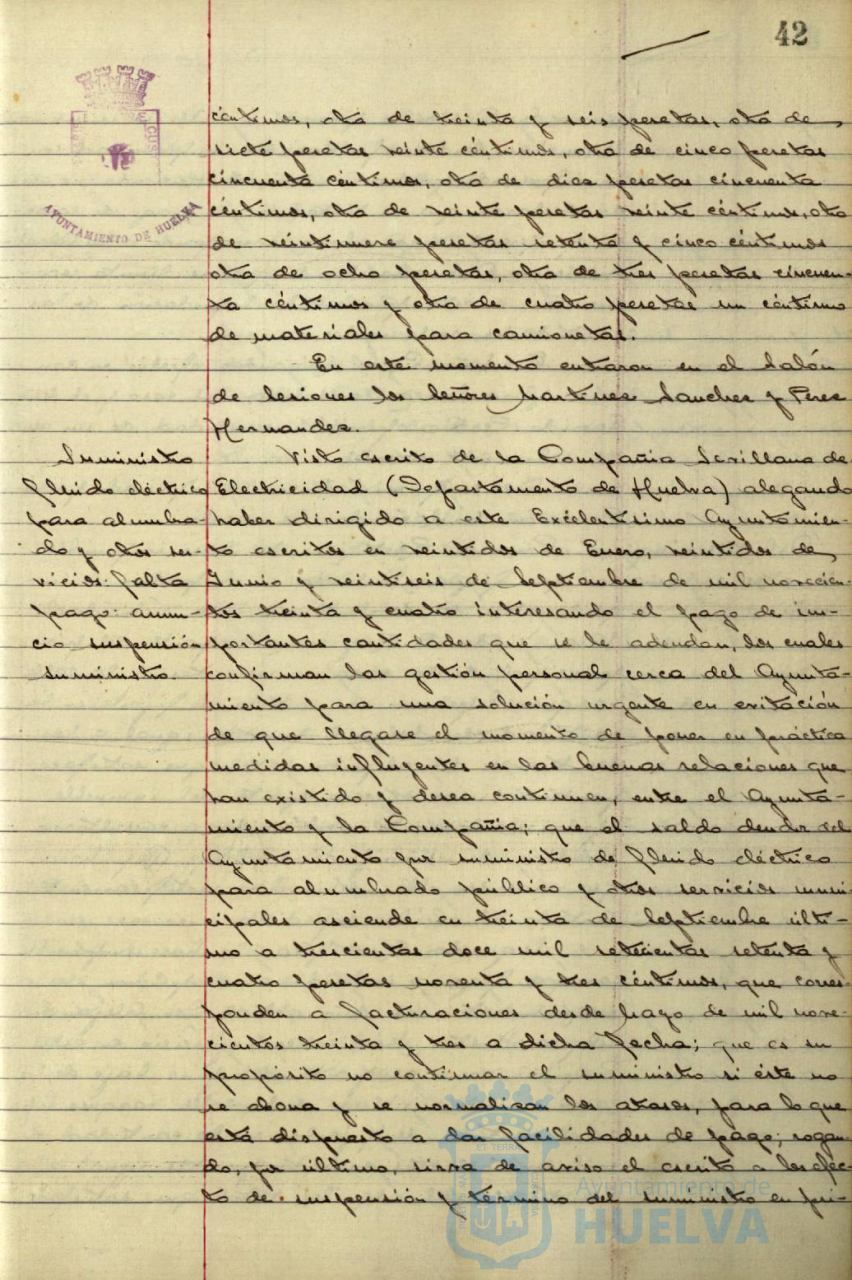 42
AYUNTAMIENTO DE HUELVA
céntimos, otra de treinta y seis pesetas, otra de
siete pesetas veinte céntimos, otra de cinco pesetas
cincuenta céntimos, otra de diez pesetas cincuenta
céntimos, otra de veinte pesetas veinte céntimos, otra
de veintinueve pesetas setenta y cinco céntimos
otra de ocho pesetas, otra de tres pesetas cincuen-
ta céntimos y otra de cuatro pesetas un céntimo
de materiales para camionetas.
En este momento entraron en el Salón
de Sesiones los Señores Martínez Sanchez y Perez
Hernandez.
Suministro
fluido eléctrico
para alumbra-
do y otros ser-
vicios: falta
pago: anun-
cio suspensión
suministro.
Visto escrito de la Compañia Sevillana de
Electricidad (Departamento de Huelva) alegando
haber dirigido a este Excelentísimo Ayuntamien-
to escritos en veintidos de Enero, veintidos de
Junio y veintiseis de Septiembre de mil novecien-
tos treinta y cuatro interesando el pago de im-
portantes cantidades que se le adeudan, los cuales
confirman las gestión personal cerca del Ayunta-
miento para una solución urgente en evitación
de que llegase el momento de poner en práctica
medidas influyentes en las buenas relaciones que
han existido y desea continuen, entre el Ayunta-
miento y la Compañia; que el saldo deudor del
Ayuntamiento por suministro de fluido eléctrico
para alumbrado público y otros servicios muni-
cipales asciende en treinta de Septiembre últi-
mo a trescientas doce mil setecientas setenta y
cuatro pesetas noventa y tres céntimos, que corres-
ponden a facturaciones desde Mayo de mil nove-
cientos treinta y tres a dicha fecha; que es su
propósito no continuar el suministro si éste no
se abona y se normalizan los atrasos, para lo que
está dispuesto a dar facilidades de pago; rogan-
do, por último, sirva de aviso el escrito a los efec-
to de suspensión y término del suministro en pri-
Ayuntamiento de
HUELVA